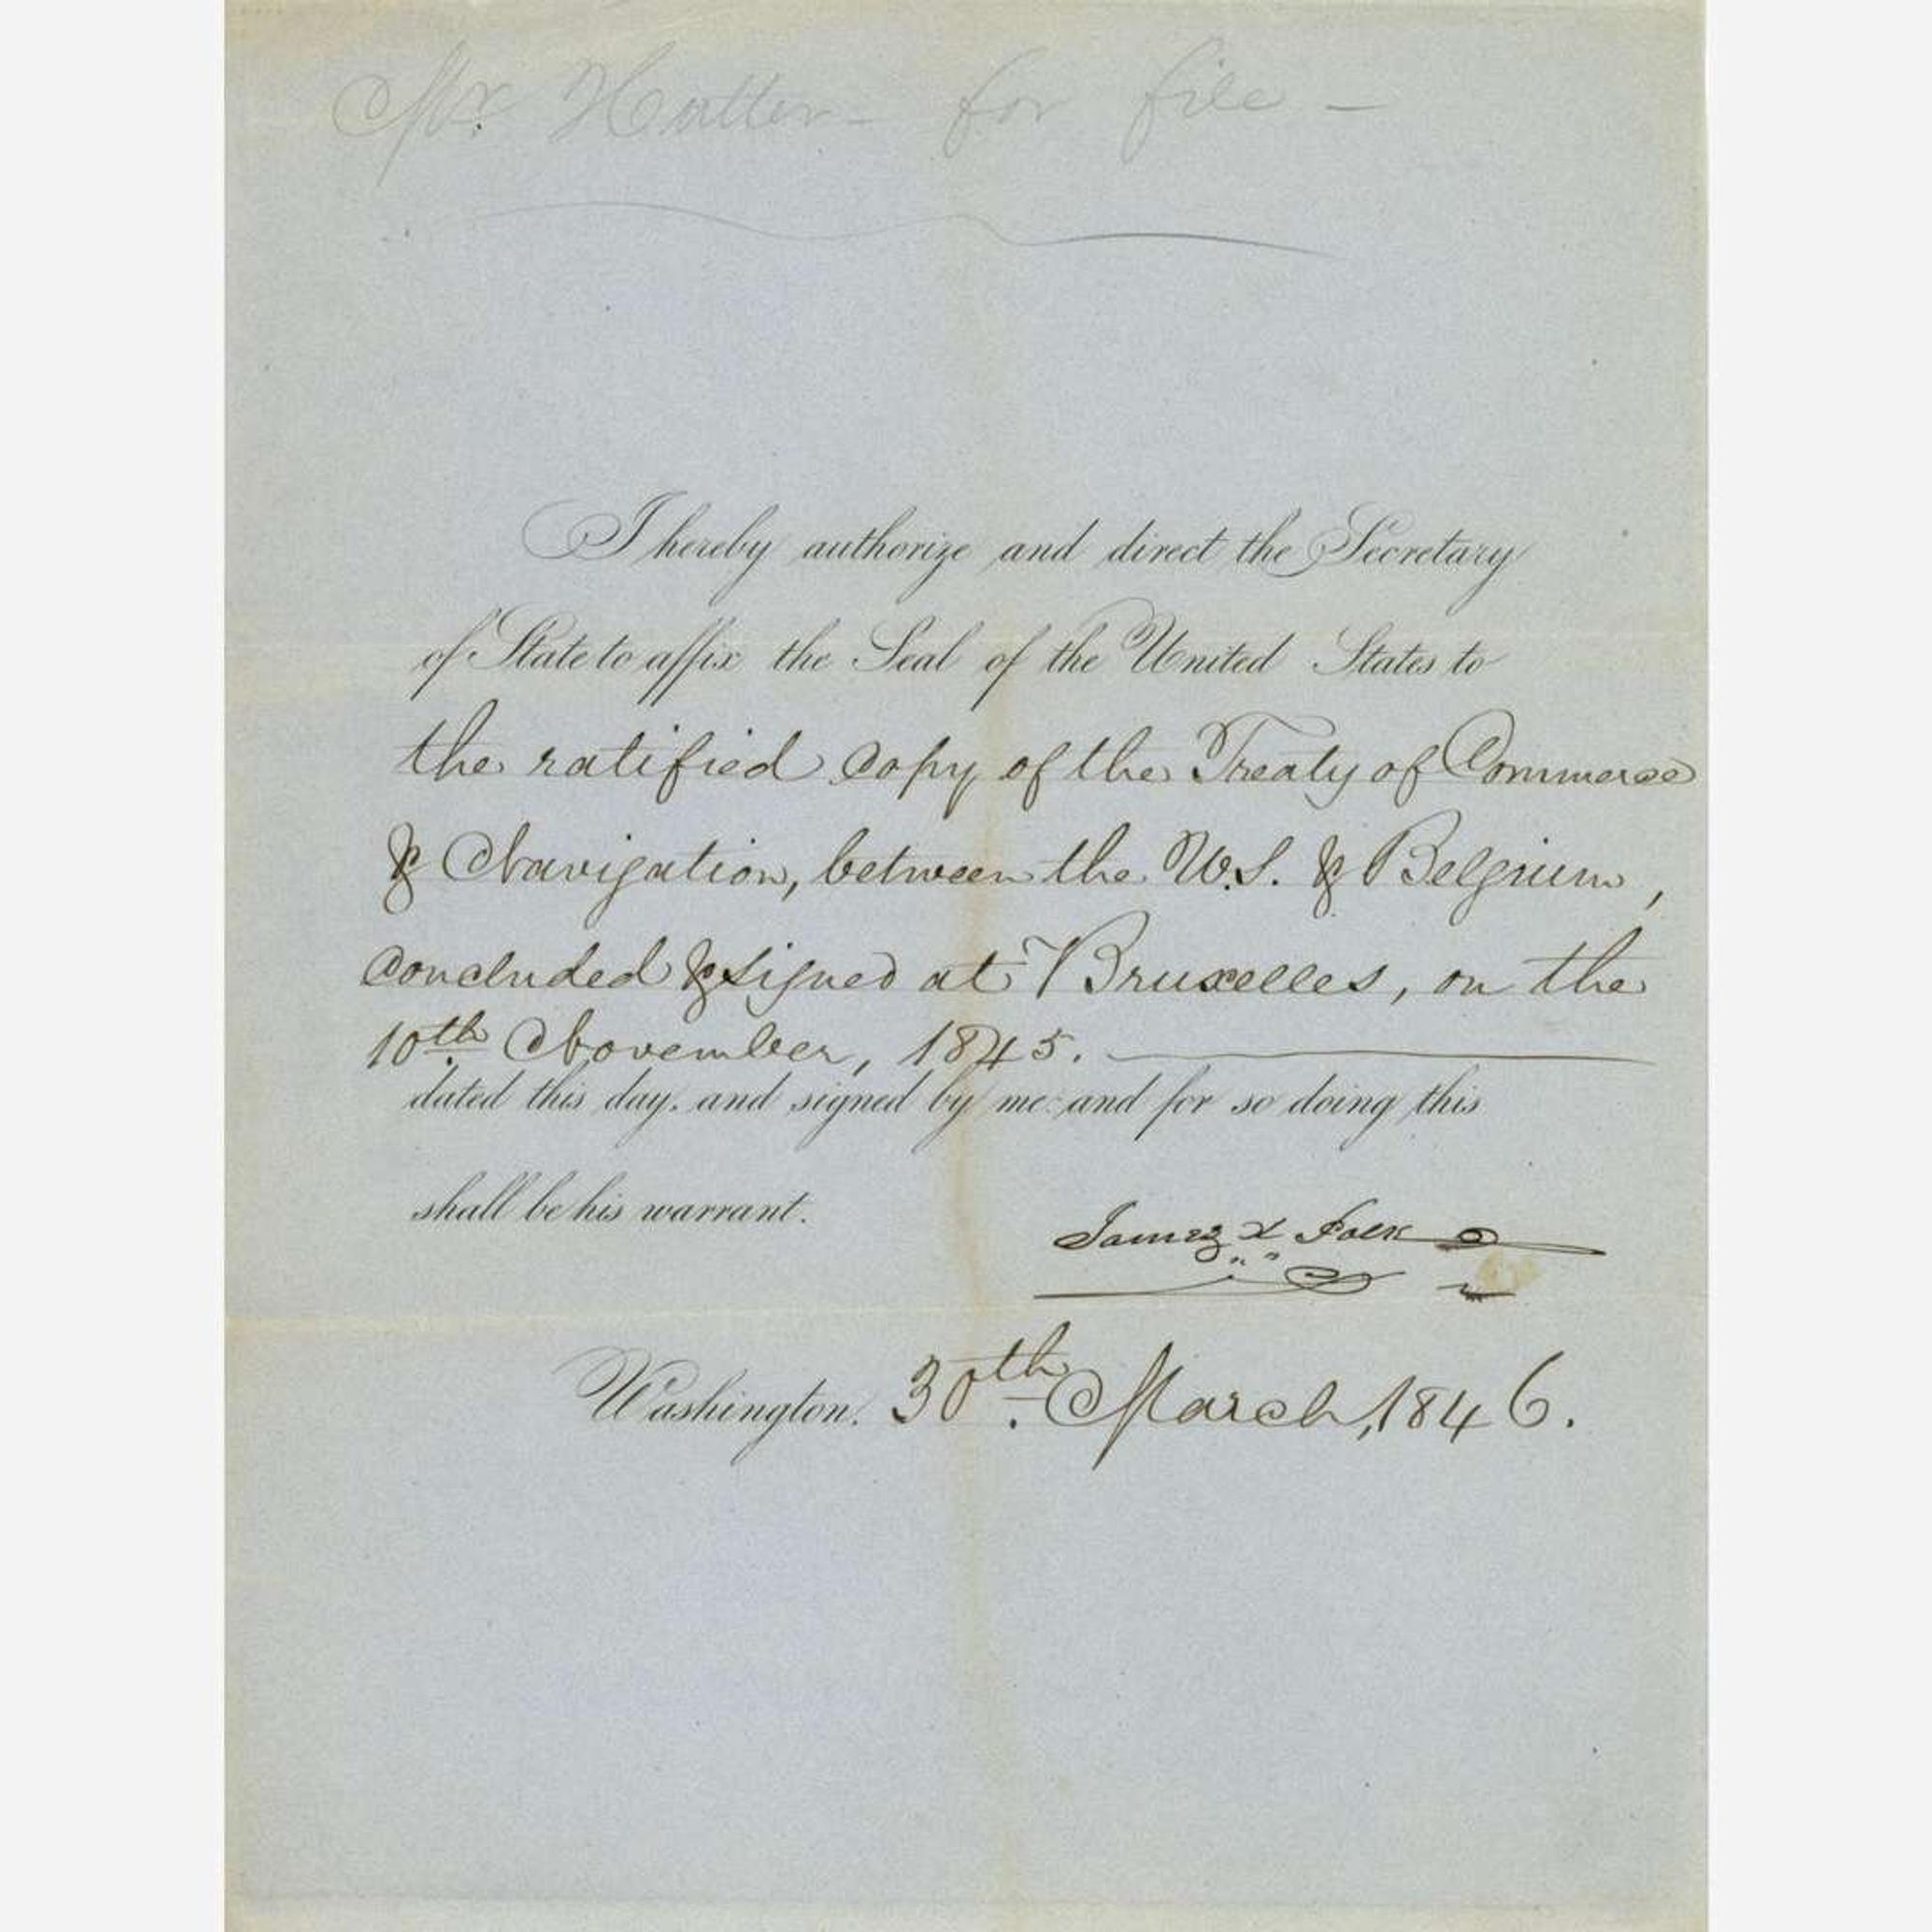 Mr. Hatter - for file -
I hereby authorize and direct the Secretary
of State to affix the Seal of the United States to
the ratified copy of the Treaty of Commerce
& Navigation, between the U.S. & Belgium,
concluded & signed at Bruxelles, on the
10th November, 1845.
dated this day, and signed by me: and for so doing this
shall be his warrant.
James K Polk
Washington, 30th March, 1846.